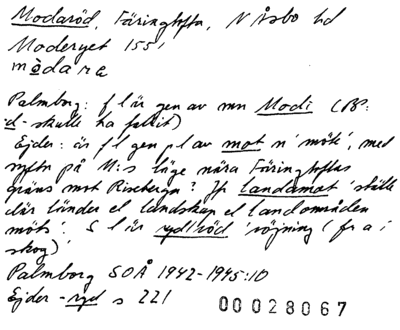 Modaröd, Färingtofta, N Åsbo hd
Moderyet 1551
mòdare
Palmborg: f l är gen av mn Modi (PB:
d-skulle ha fallit)
Ejder: är f l gen pl av mot n 'möte', med
syftn på M:s läge nära Färingtoftas
gräns mot Riseberga? Jfr landamot 'ställe
där länder el landskap el landområden
möts'. S l är ryd/röd 'röjning (fr a i
skog)'
Palmborg SOÅ 1942-1945:10
Ejder -ryd s 221
00028067